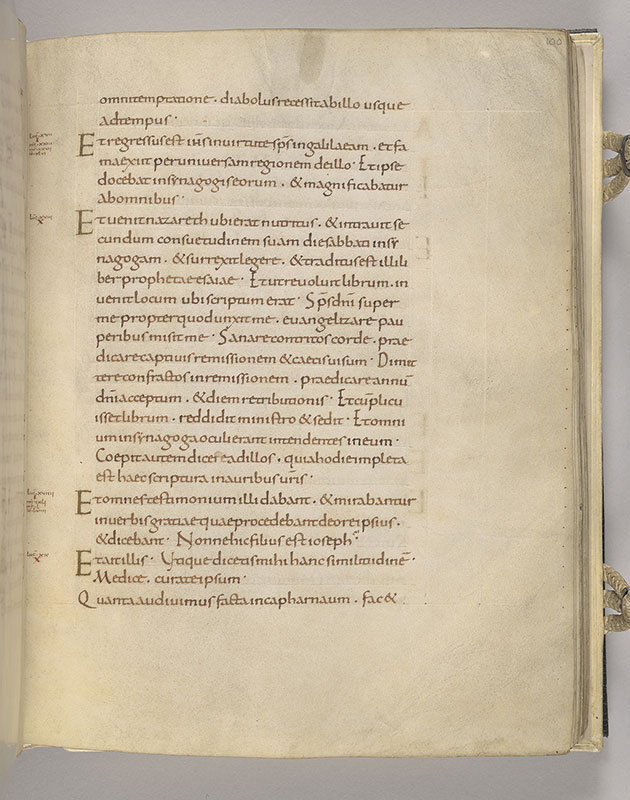 100
omni temptatione · diabolus recessit ab illo usque
ad tempus ·
Et regressus est iħs in virtute sp̄s in galilaeam · et fa
ma exiit per universam regionem de illo · Et ipse
docebat in synagogis eorum · & magnificabatur
ab omnibus ·
Et venit nazareth ubi erat nutritus · & intravit se
cundum consuetudinem suam die sabbati in sy
nagogam · & surrexit legere · & traditus est illi li
ber prophetae esaiae · Et ut revolvit librum · in
venit locum ubi scriptum erat · Sp̄s dn̄i super
me propter quod unxit me · evangelizare pau
peribus misit me · Sanare contritos corde · prae
dicare captivis remissionem & caecis visum · Dimit
tere confractos in remissionem · praedicare annū
dn̄i acceptum · & diem retributionis · Et cū plicu
isset librum · reddidit ministro & sedit · Et omni
um in synagoga oculi erant intendentes in eum ·
Coepit autem dicere ad illos · quia hodie impleta
est haec scriptura in auribus vr̄is ·
Et omnes testimonium illi dabant · & mirabantur
in verbis gratiae quae procedebant de ore ipsius ·
& dicebant · Nonne hic filius est ioseph ·
Et ait illis · Utique dicetis mihi hanc similitudinē ·
Medice · cura te ipsum ·
Quanta audivimus facta in capharnaum · fac &